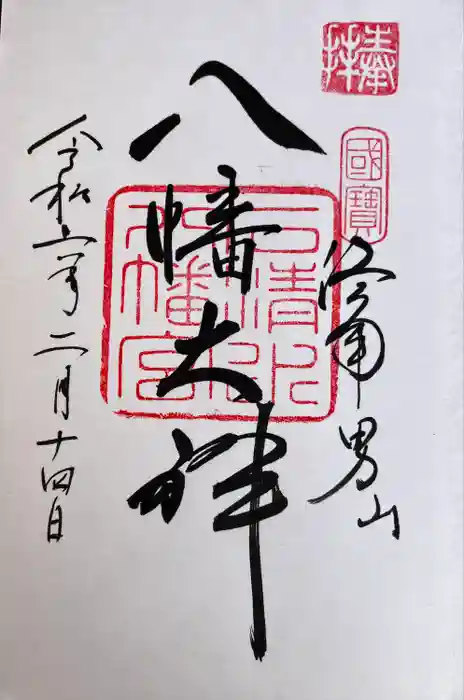 奉拝
國寶
洛南 男山
八幡大神
石清水八幡宮
令和六年二月十四日